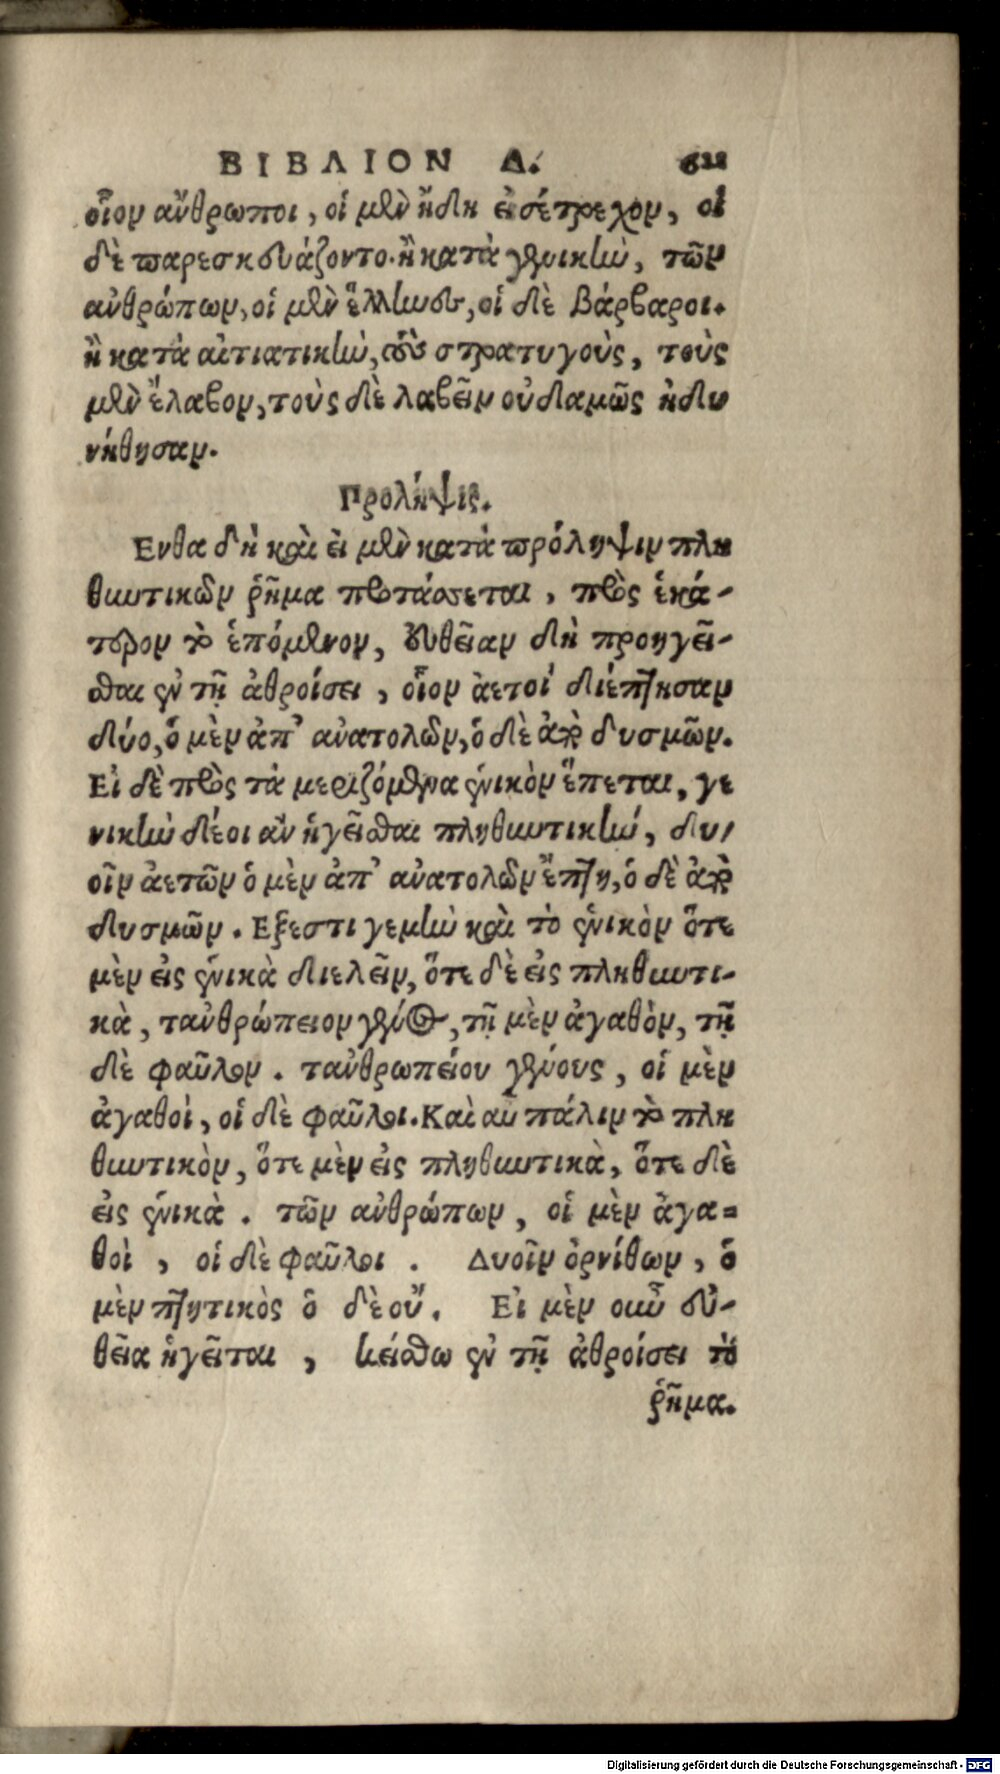 ΒΙΒΛΙΟΝ Δ.
οἷον ἄνθρωποι, οἱ μὲν ἤδη εἰσέτρεχον, οἱ
δὲ παρεσκευάζοντο. ἢ κατὰ γενικὴν, τῶν
ἀνθρώπων, οἱ μὲν ἕλληνες, οἱ δὲ Βάρβαροι.
ἢ κατὰ αἰτιατικὴν, τοὺς στρατυγοὺς, τοὺς
μὲν ἔλαβον, τοὺς δὲ λαβεῖν οὐδαμῶς ἠδυ
νήθησαν.
Προλήψις.
Ενθα δὴ καὶ εἰ μὲν κατὰ πρόληψιν πλη
θυντικῶν ῥῆμα προτάσσεται, πρὸς ἑκά-
τερον τὸ ἑπόμενον, εὐθεῖαν δὴ προηγεῖ-
σθαι ἐν τῇ ἀθροίσει, οἷον ἀετοὶ διέπτησαν
δύο, ὁ μὲν ἀπ' ἀνατολῶν, ὁ δὲ ἀπὸ δυσμῶν.
Εἰ δὲ πρὸς τὰ μεριζόμενα ἑνικὸν ἕπεται, γε
νικὴν δέοι ἂν ἡγεῖσθαι πληθυντικὴν, δυ-
οῖν ἀετῶν ὁ μὲν ἀπ' ἀνατολῶν ἔπτη, ὁ δὲ ἀπὸ
δυσμῶν. Εξεστι γεμὴν καὶ τὸ ἑνικὸν ὅτε
μὲν εἰς ἑνικὰ διελεῖν, ὅτε δὲ εἰς πληθυντι-
κὰ, τἀνθρώπειον γένος, τῇ μὲν ἀγαθὸν, τῇ
δὲ φαῦλον. τἀνθρωπείου γένους, οἱ μὲν
ἀγαθοὶ, οἱ δὲ φαῦλοι. Καὶ αὖ πάλιν τὸ πλη
θυντικὸν, ὅτε μὲν εἰς πληθυντικὰ, ὅτε δὲ
εἰς ἑνικὰ. τῶν ἀνθρώπων, οἱ μὲν ἀγα-
θοὶ, οἱ δὲ φαῦλοι. Δυοῖν ὀρνίθων, ὁ
μὲν πτητικὸς ὁ δὲ οὔ. Εἰ μὲν οὖν εὐ-
θεῖα ἡγεῖται, κείσθω ἐν τῇ ἀθροίσει τὸ
ῥῆμα.
Digitalisierung gefördert durch die Deutsche Forschungsgemeinschaft - DFG